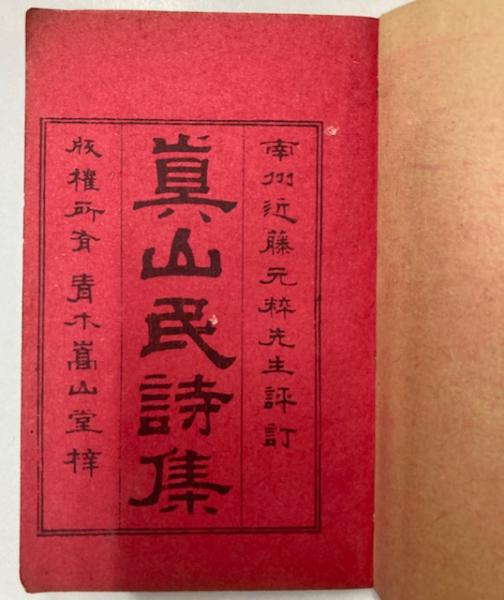 南州近藤元粹先生評訂
眞山民詩集
版權所有 青木嵩山堂梓